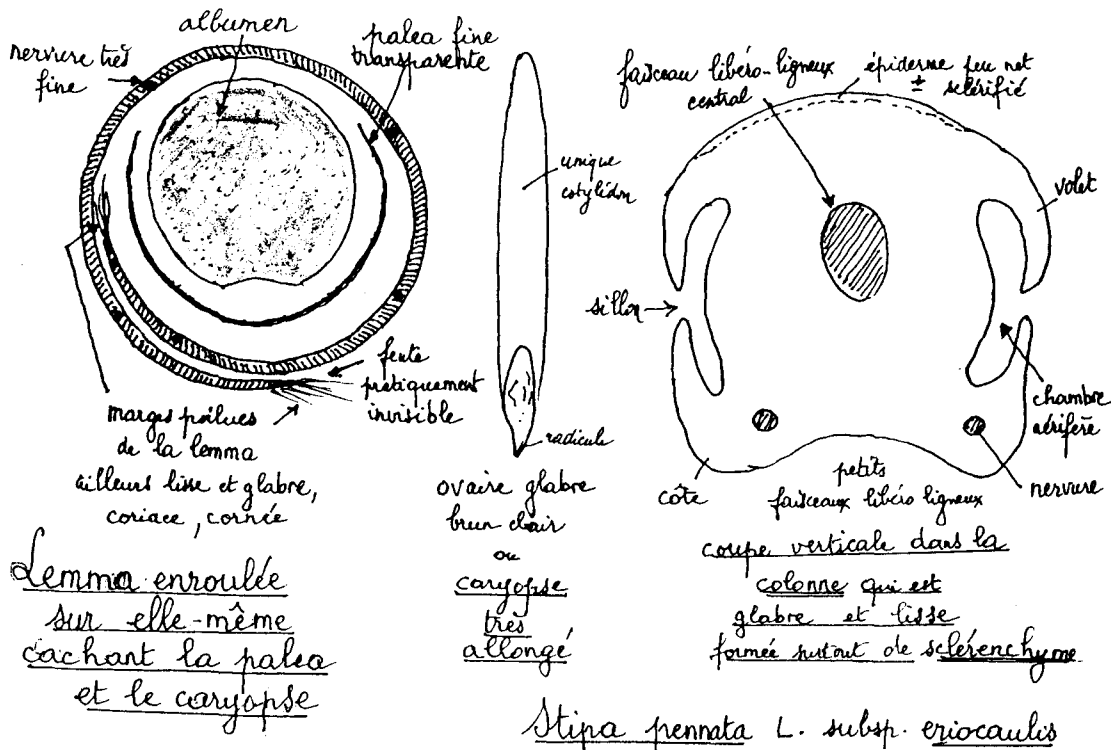 albumen
nervure très
fine
palea fine
transparente
fente
pratiquement
invisible
marges poilues
de la lemma
ailleurs lisse et glabre,
coriace, cornée
Lemma enroulée
sur elle-même
cachant la palea
et le caryopse
unique
cotylédon
radicule
ovaire glabre
brun clair
ou
caryopse
très
allongé
faisceau libéro-ligneux
central
épiderme peu net
± sclérifié
volet
sillon
chambre
aérifère
côte
petits
faisceaux libéro ligneux
nervure
coupe verticale dans la
colonne qui est
glabre et lisse
formée surtout de sclérenchyme
Stipa pennata L. subsp. eriocaulis